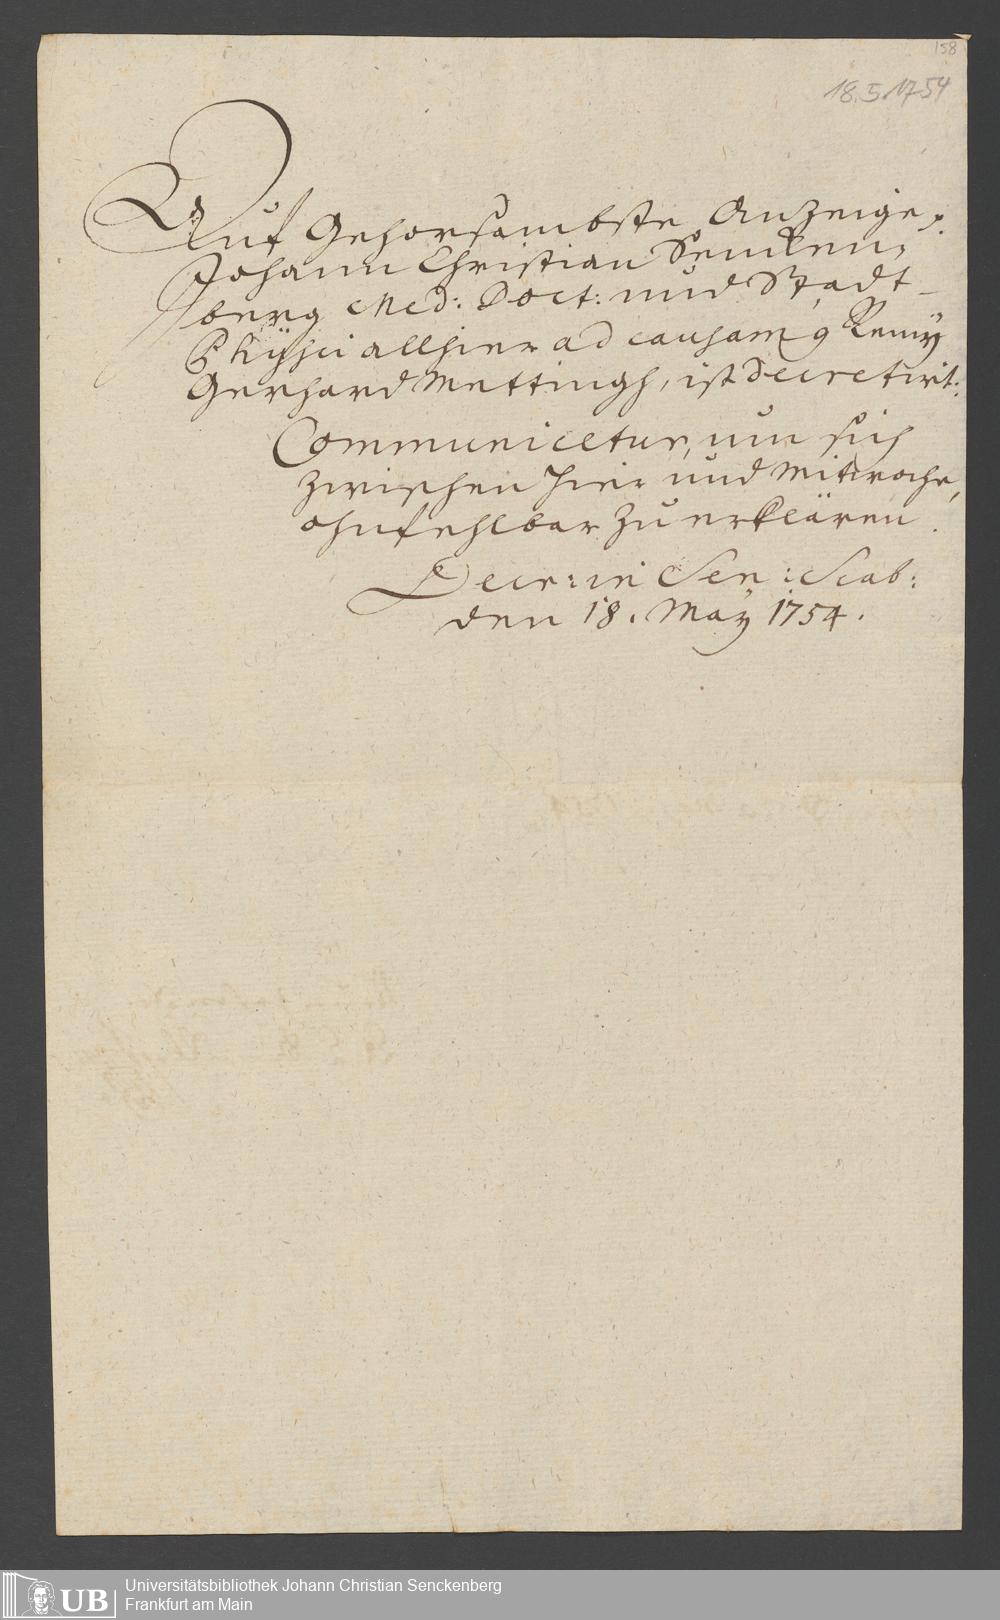 158
18.5.1754
Auf Gehorsambste Anzeige
Johann Christian Sencken,
berg Med: Doct: und Stadt-
Physici allhier ad causam Remy
Gerhard Mettingh, ist decretirt:
Communicetur, um sich
zwischen hier und Mitwoche,
ohnfehlbar zu erklären.
Decr: in Sen: Scab:
den 18. May 1754.
UB
Universitätsbibliothek Johann Christian Senckenberg
Frankfurt am Main